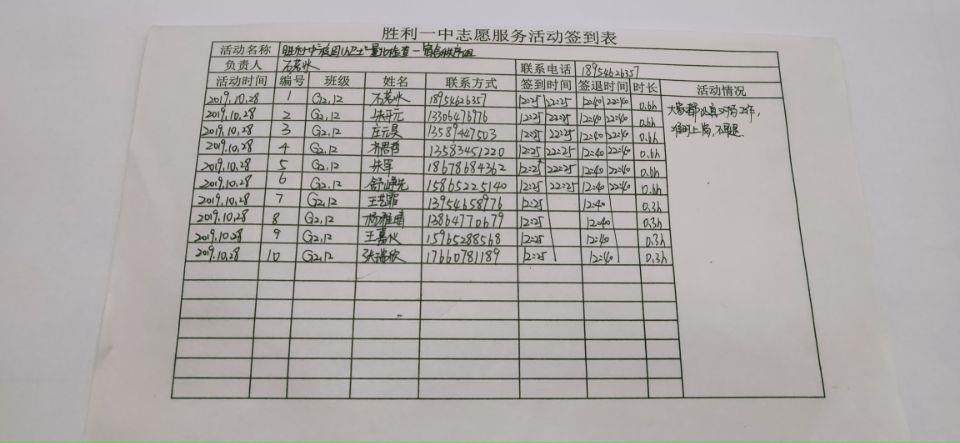 胜利一中志愿服务活动签到表
活动名称 胜利一中校园 量化检查一宿舍秩序组
负责人 石茗水 联系电话 18954626357
活动时间 编号 班级 姓名 联系方式 签到时间 签退时间 时长 活动情况
2019.10.28 1 G2,12 石茗水 18954626357 12:25 22:25 12:40 22:40 0.6h 大家都认真 工作,
2019.10.28 2 G2,12 朱开元 13306476776 12:25 22:25 12:40 22:40 0.6h 准时上岗,不早退
2019.10.28 3 G2,12 庄元昊 13589447503 12:25 22:25 12:40 22:40 0.6h
2019.10.28 4 G2,12 13583451220 12:25 22:25 12:40 22:40 0.6h
2019.10.28 5 G2,12 朱军 18678684362 12:25 22:25 12:40 22:40 0.6h
2019.10.28 6 G2,12 15865225140 12:25 22:25 12:40 22:40 0.6h
2019.10.28 7 G2,12 王艺霏 13954658776 12:25 12:40 0.3h
2019.10.28 8 G2,12 杨雅晴 13864770679 12:25 12:40 0.3h
2019.10.28 9 G2,12 王嘉 15965288568 12:25 12:40 0.3h
2019.10.28 10 G2,12 张瑞欣 17660781189 12:25 12:40 0.3h